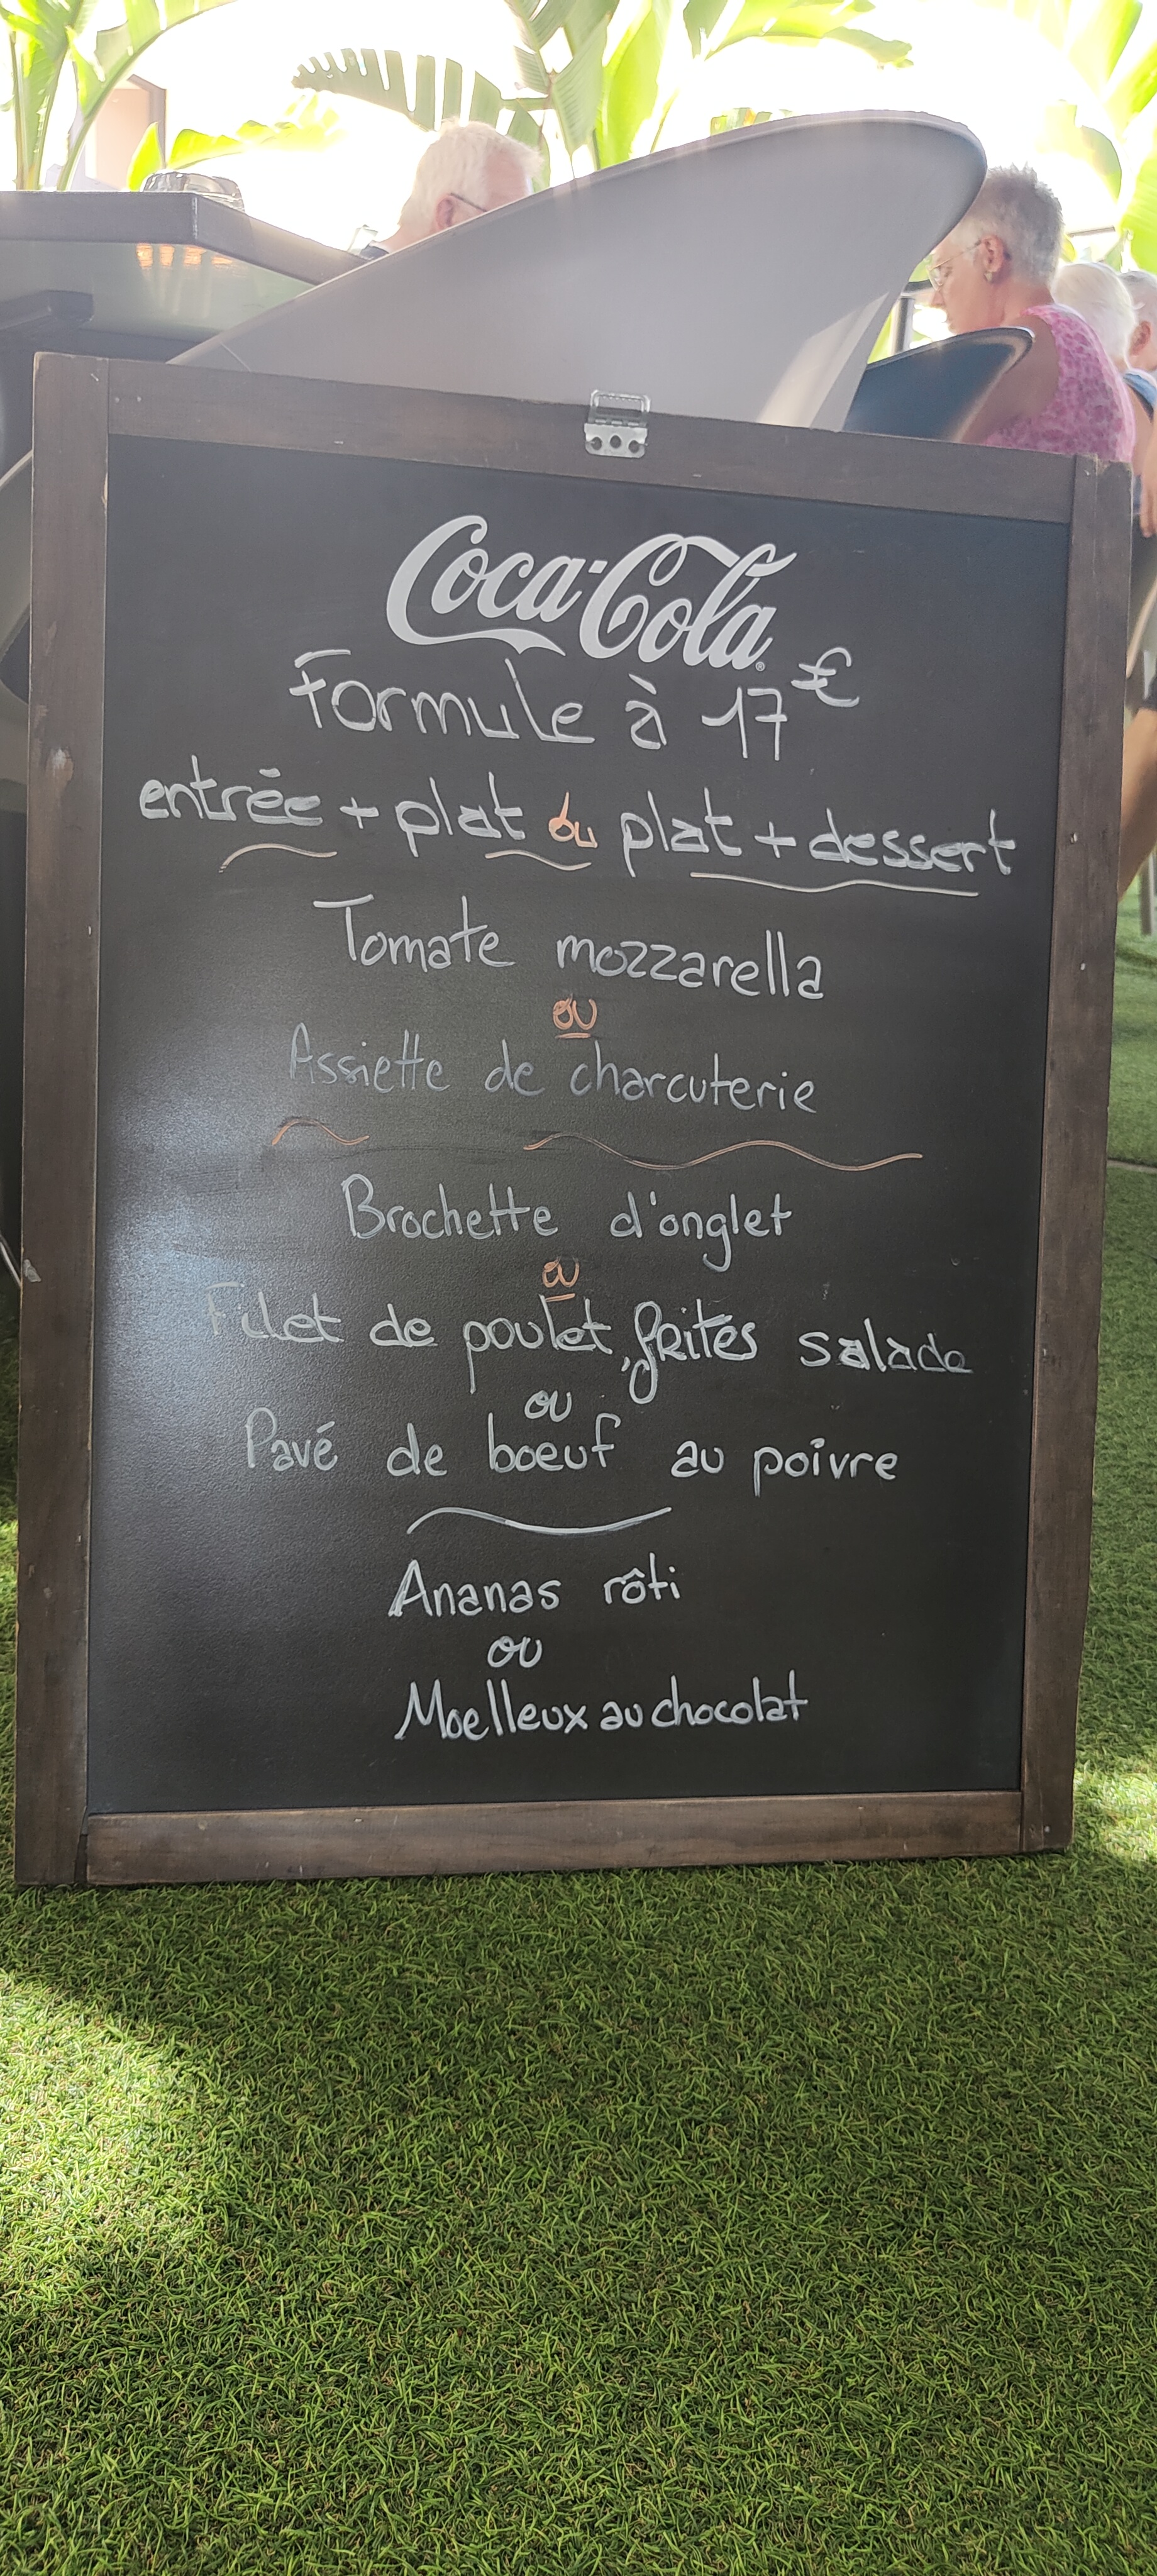 Coca-Cola
Formule à 17€
entrée + plat ou plat + dessert
Tomate mozzarella
ou
Assiette de charcuterie
Brochette d'onglet
ou
Filet de poulet, frites salade
ou
Pavé de boeuf au poivre
Ananas rôti
ou
Moelleux au chocolat